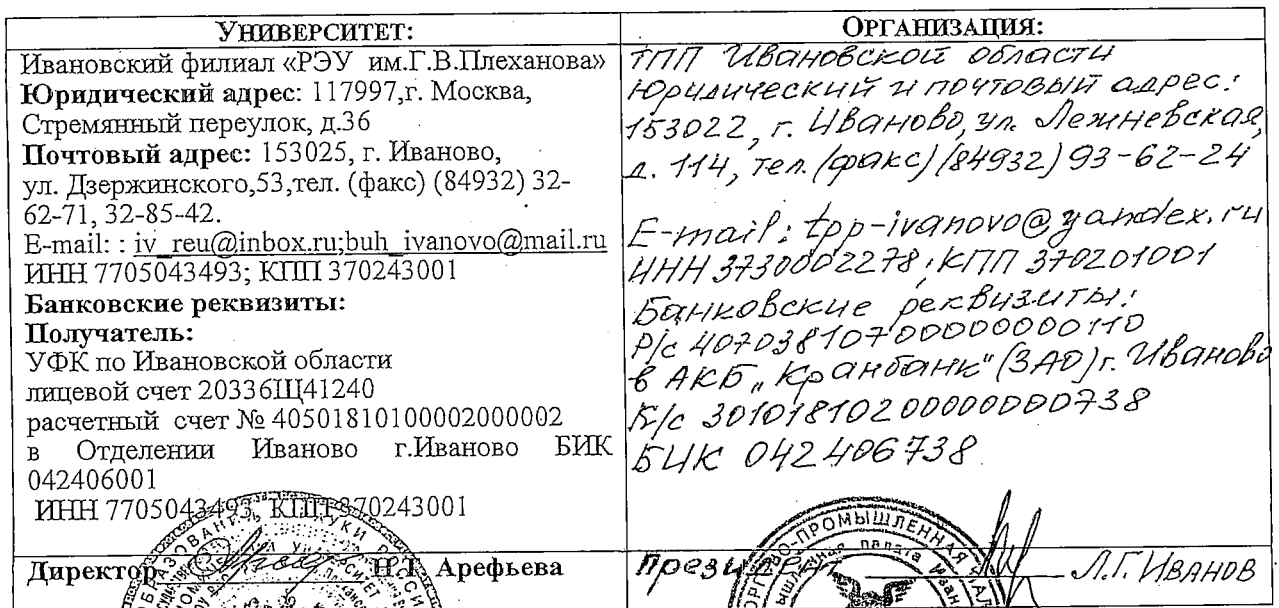 УНИВЕРСИТЕТ:
Ивановский филиал «РЭУ им.Г.В.Плеханова»
Юридический адрес: 117997,г. Москва,
Стремянный переулок, д.36
Почтовый адрес: 153025, г. Иваново,
ул. Дзержинского,53,тел. (факс) (84932) 32-
62-71, 32-85-42.
E-mail: : iv_reu@inbox.ru;buh_ivanovo@mail.ru
ИНН 7705043493; КПП 370243001
Банковские реквизиты:
Получатель:
УФК по Ивановской области
лицевой счет 20336Щ41240
расчетный счет № 40501810100002000002
в Отделении Иваново г.Иваново БИК
042406001
ИНН 7705043493, КПП 370243001
Директор Н.Г. Арефьева
ОРГАНИЗАЦИЯ:
ТПП Ивановской области
Юридический и почтовый адрес:
153022, г. Иваново, ул. Лежневская,
д. 114, тел. (факс) (84932) 93-62-24
E-mail: tpp-ivanovo@yandex.ru
ИНН 3730002278; КПП 370201001
Банковские реквизиты:
Р/с 40703810700000000110
в АКБ „Кранбанк" (ЗАО) г. Иваново
К/с 30101810200000000738
БИК 042406738
Президент Л.Г. Иванов